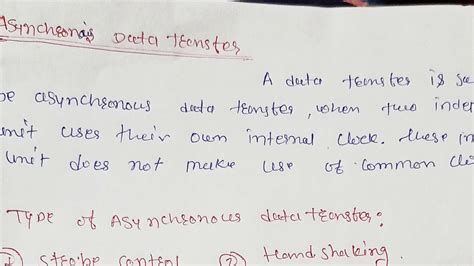 Asynchronous Data transfer
A data transfer is sa
be asynchronous data transfer, when two inder
unit uses their own internal clock. these in
unit does not make use of common clo
TYPE of Asynchronous data transfer:
① strobe control ② Handshaking.